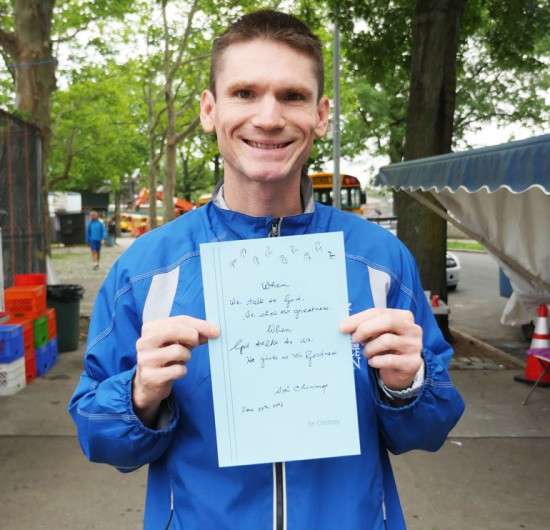 When
We talk to God,
He shows us greatness.
When
God talks to us,
He gives us His Goodness.
Sri Chinmoy
Sri Chinmoy